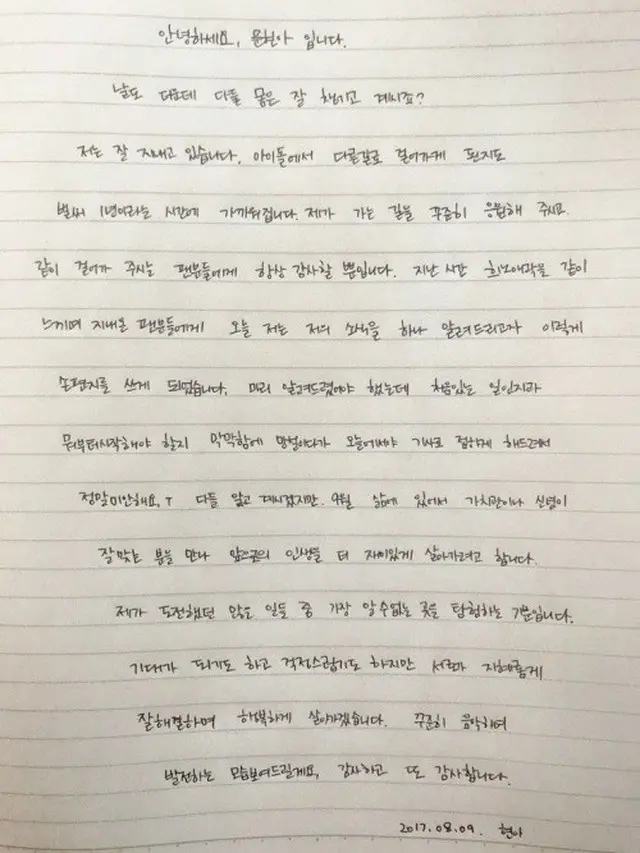 안녕하세요, 문현아 입니다.
날도 더운데 다들 몸은 잘 챙기고 계시죠?
저는 잘 지내고 있습니다. 아이돌에서 다른길로 걸어가게 된지도
벌써 1년이라는 시간에 가까워집니다. 제가 가는 길을 꾸준히 응원해 주시고
같이 걸어가 주시는 팬분들에게 항상 감사할 뿐입니다. 지난 시간 희노애락을 같이
느끼며 지내온 팬분들에게 오늘 저는 저의 소식을 하나 알려드리고자 이렇게
손편지를 쓰게 되었습니다. 미리 알려드렸어야 했는데 처음있는 일인지라
뭐부터시작해야 할지 막막함에 망설이다가 오늘에서야 기사로 접하게 해드려서
정말미안해요. ㅜ 다들 알고 계시겠지만. 9월 삶에 있어서 가치관이나 신념이
잘맞는 분을 만나 앞으로의 인생을 더 재미있게 살아가려고 합니다.
제가 도전했던 많은 일들 중 가장 알수없는 곳을 탐험하는 기분입니다.
기대가 되기도 하고 걱정스럽기도 하지만 서로가 지혜롭게
잘해결하며 행복하게 살아가겠습니다. 꾸준히 음악하며
발전하는 모습보여드릴게요, 감사하고 또 감사합니다.
2017.08.09. 현아